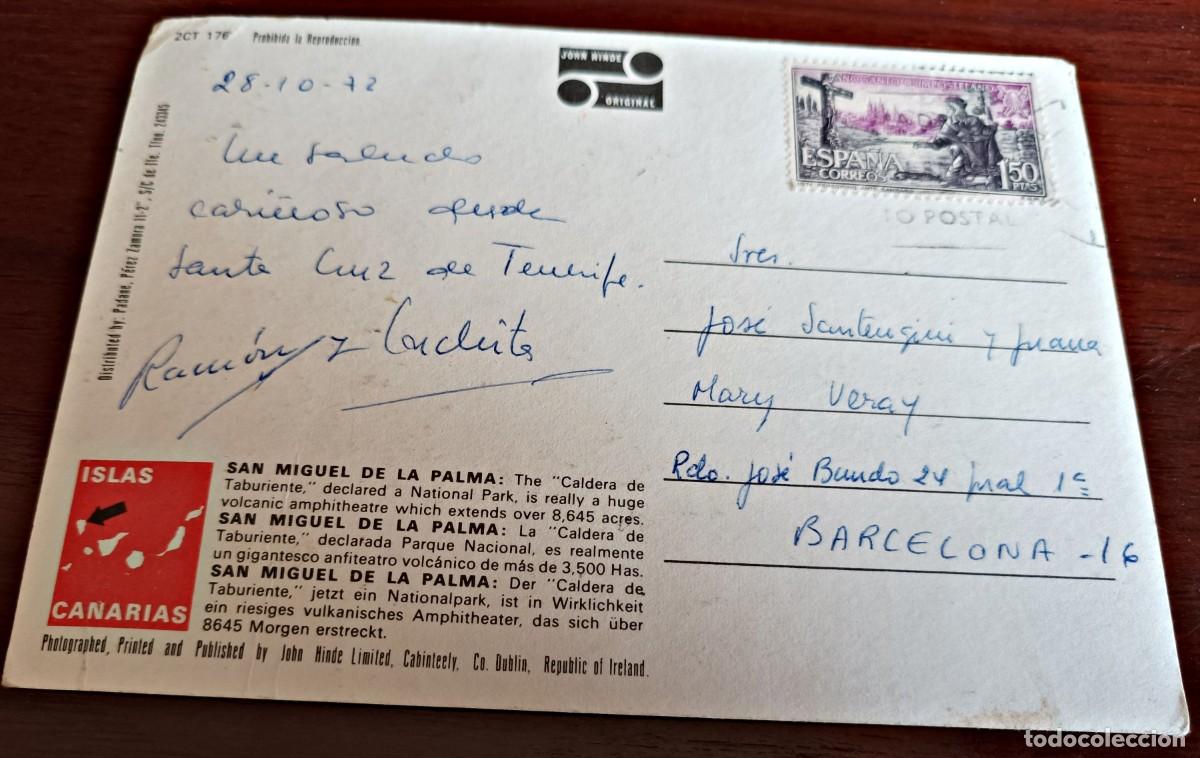 2CT 176 Prohibida la Reproducción
JOHN HINDE
ORIGINAL
28-10-72
Un saludo
cariñoso desde
Santa Cruz de Tenerife.
Ramón y Conchita
Distributed by: Padane, Pérez Zamora 11-2º, S/C de Tfe. Tfno. 243345
ESPAÑA
CORREOS
1,50
PTAS
TO POSTAL
Sres.
José y Juana
Mary Veray
José 24 pral 1ª
BARCELONA -16
ISLAS
CANARIAS
SAN MIGUEL DE LA PALMA: The "Caldera de
Taburiente," declared a National Park, is really a huge
volcanic amphitheatre which extends over 8,645 acres.
SAN MIGUEL DE LA PALMA: La "Caldera de
Taburiente," declarada Parque Nacional, es realmente
un gigantesco anfiteatro volcánico de más de 3,500 Has.
SAN MIGUEL DE LA PALMA: Der "Caldera de
Taburiente," jetzt ein Nationalpark, ist in Wirklichkeit
ein riesiges vulkanisches Amphitheater, das sich über
8645 Morgen erstreckt.
Photographed, Printed and Published by John Hinde Limited, Cabinteely, Co. Dublin, Republic of Ireland.
todocoleccion